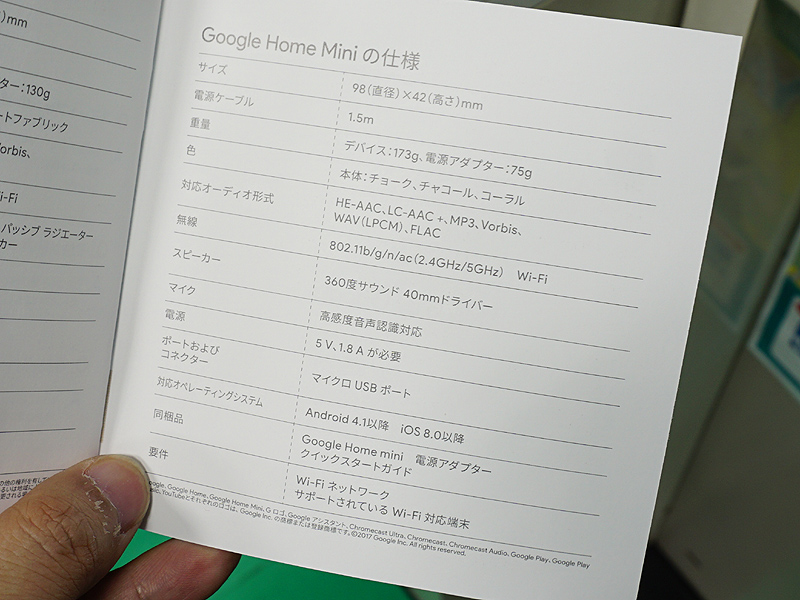 )mm
ター：130g
ートファブリック
Vorbis、
i-Fi
パッシブ ラジエーター
カー
Google Home Mini の仕様
サイズ
98（直径）×42（高さ）mm
電源ケーブル
1.5m
重量
デバイス：173g、電源アダプター：75g
色
本体：チョーク、チャコール、コーラル
対応オーディオ形式
HE-AAC、LC-AAC +、MP3、Vorbis、
WAV（LPCM）、FLAC
無線
802.11b/g/n/ac（2.4GHz/5GHz） Wi-Fi
スピーカー
360度サウンド 40mmドライバー
マイク
高感度音声認識対応
電源
5 V、1.8 A が必要
ポートおよび
コネクター
マイクロ USB ポート
対応オペレーティングシステム
Android 4.1以降 iOS 8.0以降
同梱品
Google Home mini 電源アダプター
クイックスタートガイド
要件
Wi-Fi ネットワーク
サポートされている Wi-Fi 対応端末
oogle、Google Home、Google Home Mini、G ロゴ、Google アシスタント、Chromecast Ultra、Chromecast、Chromecast Audio、Google Play、Google Play
YouTubeとそれぞれのロゴは、Google Inc. の商標または登録商標です。©2017 Google Inc. All rights reserved.